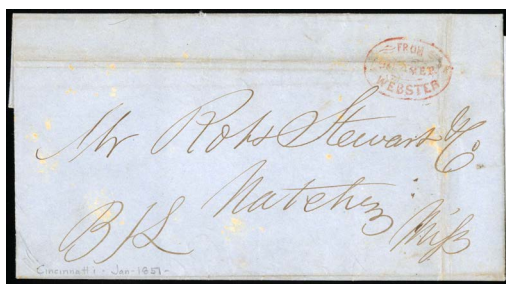 FROM
WEBSTER
Mr Robt Stewart & Co.
Natchez
Miss
B/L
Cincinnati - Jan - 1851 -